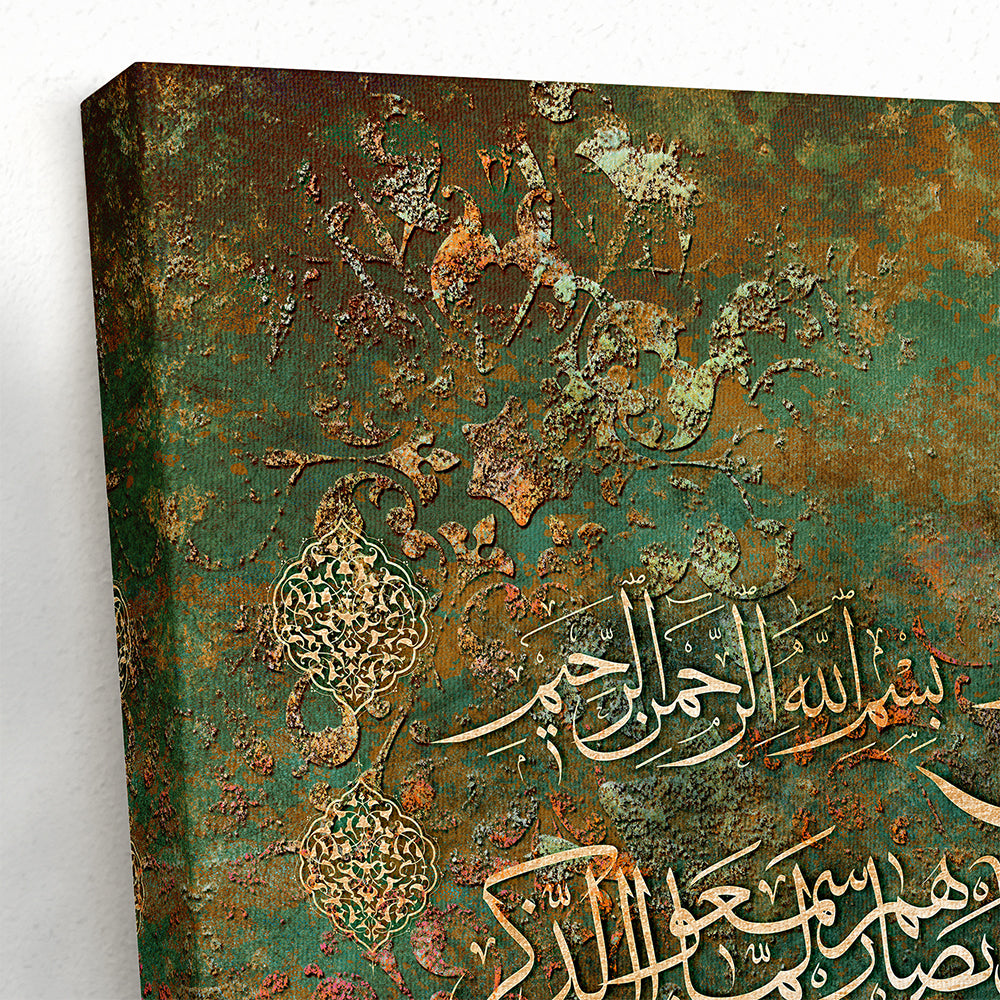 بِسْمِ اللّٰهِ الرَّحْمٰنِ الرَّحِيْمِ
بصارهم لما سمعوا الذكر